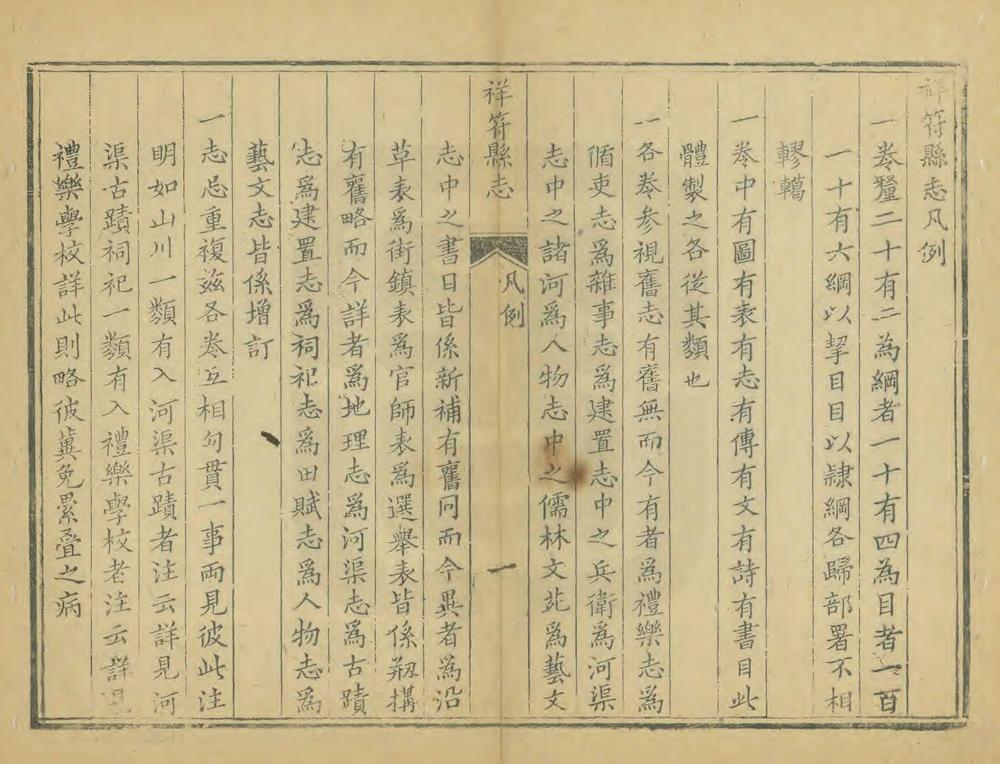 祥符縣志凡例
一卷釐二十有二為綱者一十有四為目者一百
一十有六綱以挈目目以隸綱各歸部署不相
轇轕
一卷中有圖有表有志有傳有文有詩有書目此
體製之各從其類也
一各卷參視舊志有舊無而今有者為禮樂志為
循吏志為雜事志為建置志中之兵衛為河渠
志中之諸河為人物志中之儒林文苑為藝文
祥符縣志 凡例 一
志中之書目皆係新補有舊同而今異者為沿
革表為街鎮表為官師表為選舉表皆係剏搆
有舊略而今詳者為地理志為河渠志為古蹟
志為建置志為祠祀志為田賦志為人物志為
藝文志皆係增訂
一志忌重複茲各卷互相勾貫一事両見彼此注
明如山川一類有入河渠古蹟者注云詳見河
渠古蹟祠祀一類有入禮樂學校老注云詳見
禮樂學校詳此則略彼冀免累疊之病